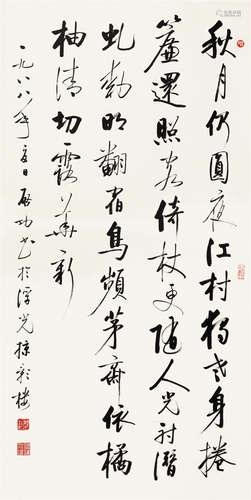 秋月仍圓夜江村独老身捲
簾還照客倚杖更随人光射潛
虬動明翻宿鳥頻茅齋依橘
柚清切露華新
一九八八年夏日启功書於浮光掠影樓